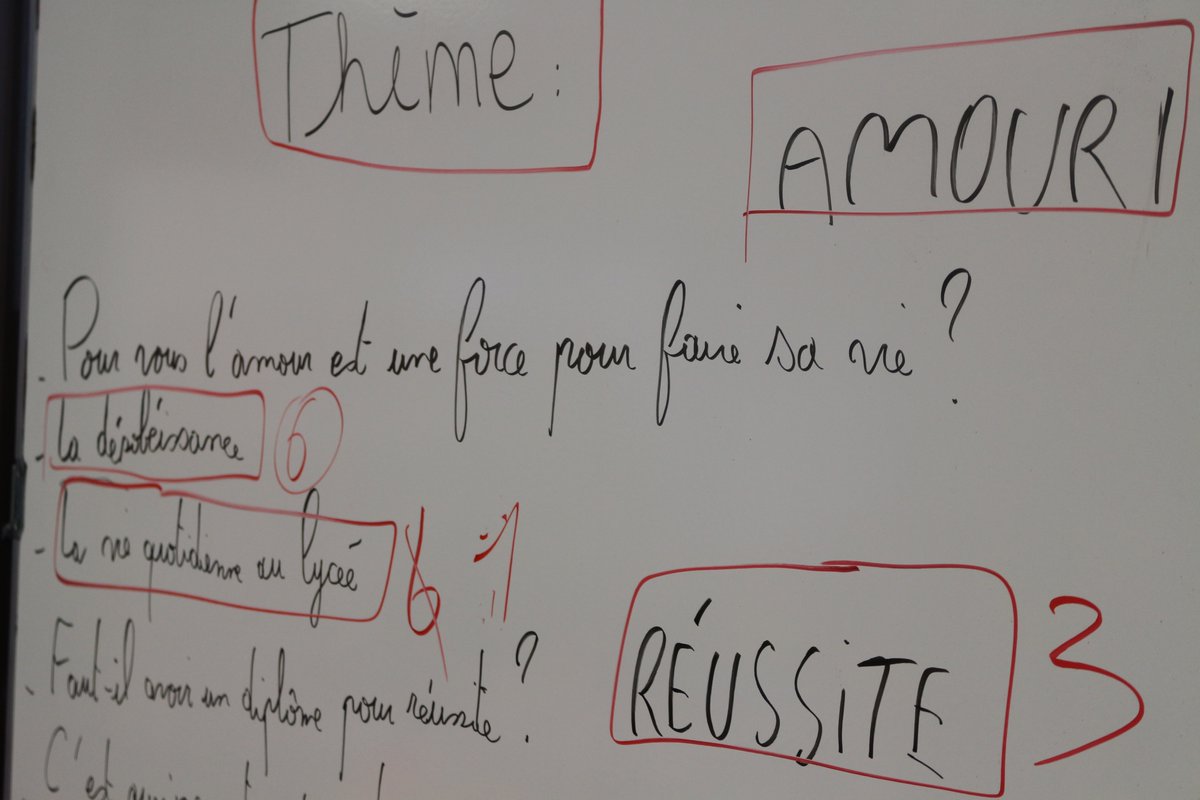 Thème :
AMOUR 1
. Pour vous l'amour est une force pour faire sa vie ?
- La désobéissance 6
- La vie quotidienne au lycée 6 1
. Faut-il avoir un diplôme pour réussite ?
RÉUSSiTE 3
C'est